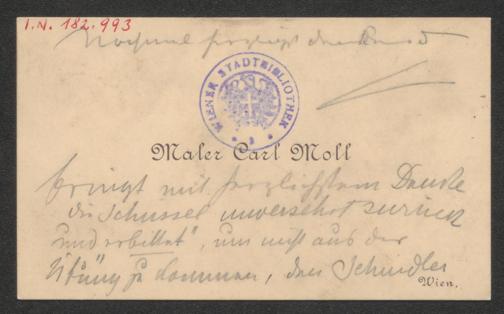 I.N. 182.993
Nochmal herzlichst dankend
WIENER STADTBIBLIOTHEK
Maler Carl Moll
bringt mit herzlichstem Danke
die Schüssel unversehrt zurück
und erbittet, um nicht aus der
Übung zu kommen, den Schindler
Wien.